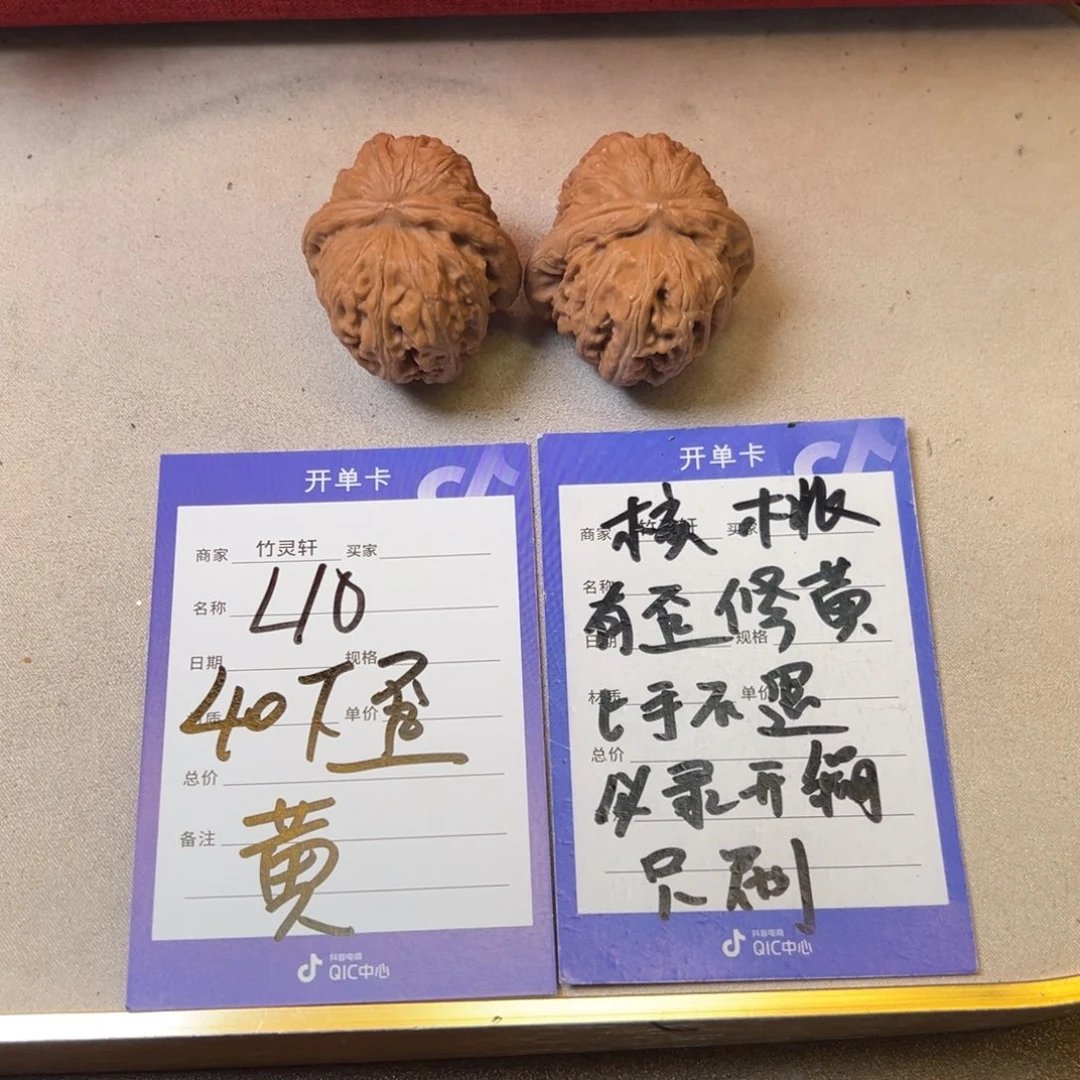 开单卡
商家 竹灵轩 买家
名称 L10
日期 规格
40下歪
质 单价
总价
黄
备注
抖音电商
QIC中心
开单卡
商家 轩 买家
核桃
名称
有歪修黄
日期 规格
上手不退
材质 单价
总价
必录开
尺刷
抖音电商
QIC中心